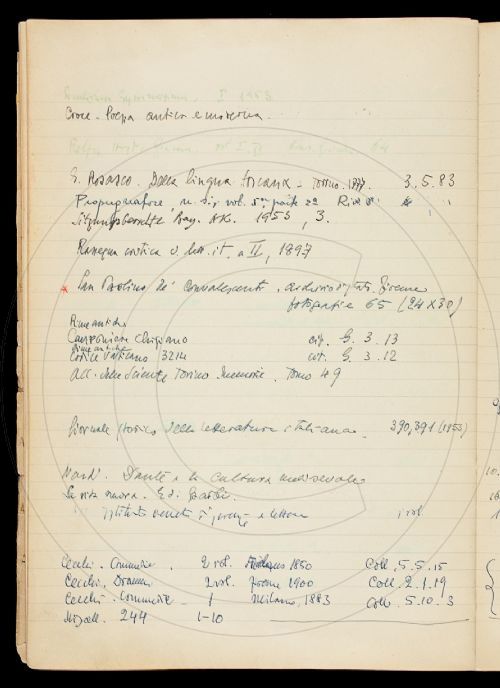 I 1953
Croce. Poesia antica e moderna.
64
G. Rosasco. Della lingua toscana - Torino. 1777. 3.5.83
Propugnatore, n. s. vol. parte 2a
Sitzungsberichte Bay. AK. 1953, 3.
Rassegna critica d. lett. it. a II, 1897
San Paolino de' Convalescenti. archivio di stato. firenze
fotografie 65 (24 x 30)
Rime antiche
Canzoniere Chigiano cit. G. 3. 13
Rime antiche
Codice Vaticano 3214 cit. G. 3. 12
Acc. delle Scienze Torino. Memorie. Tomo 49
Giornale storico della letteratura italiana. 390, 391 (1953)
Nardi. Dante e la cultura medievale
La vita nuova. Ed. Barbi.
Istituto veneto di scienze e lettere 1 vol.
Cecchi. Commedie. 2 vol. 1850 Coll. 5.5.15
Cecchi. Drammi 2 vol. firenze 1900 Coll. 2.1.19
Cecchi. Commedie - 1 Milano, 1883 Coll. 5.10.3
244 1-10